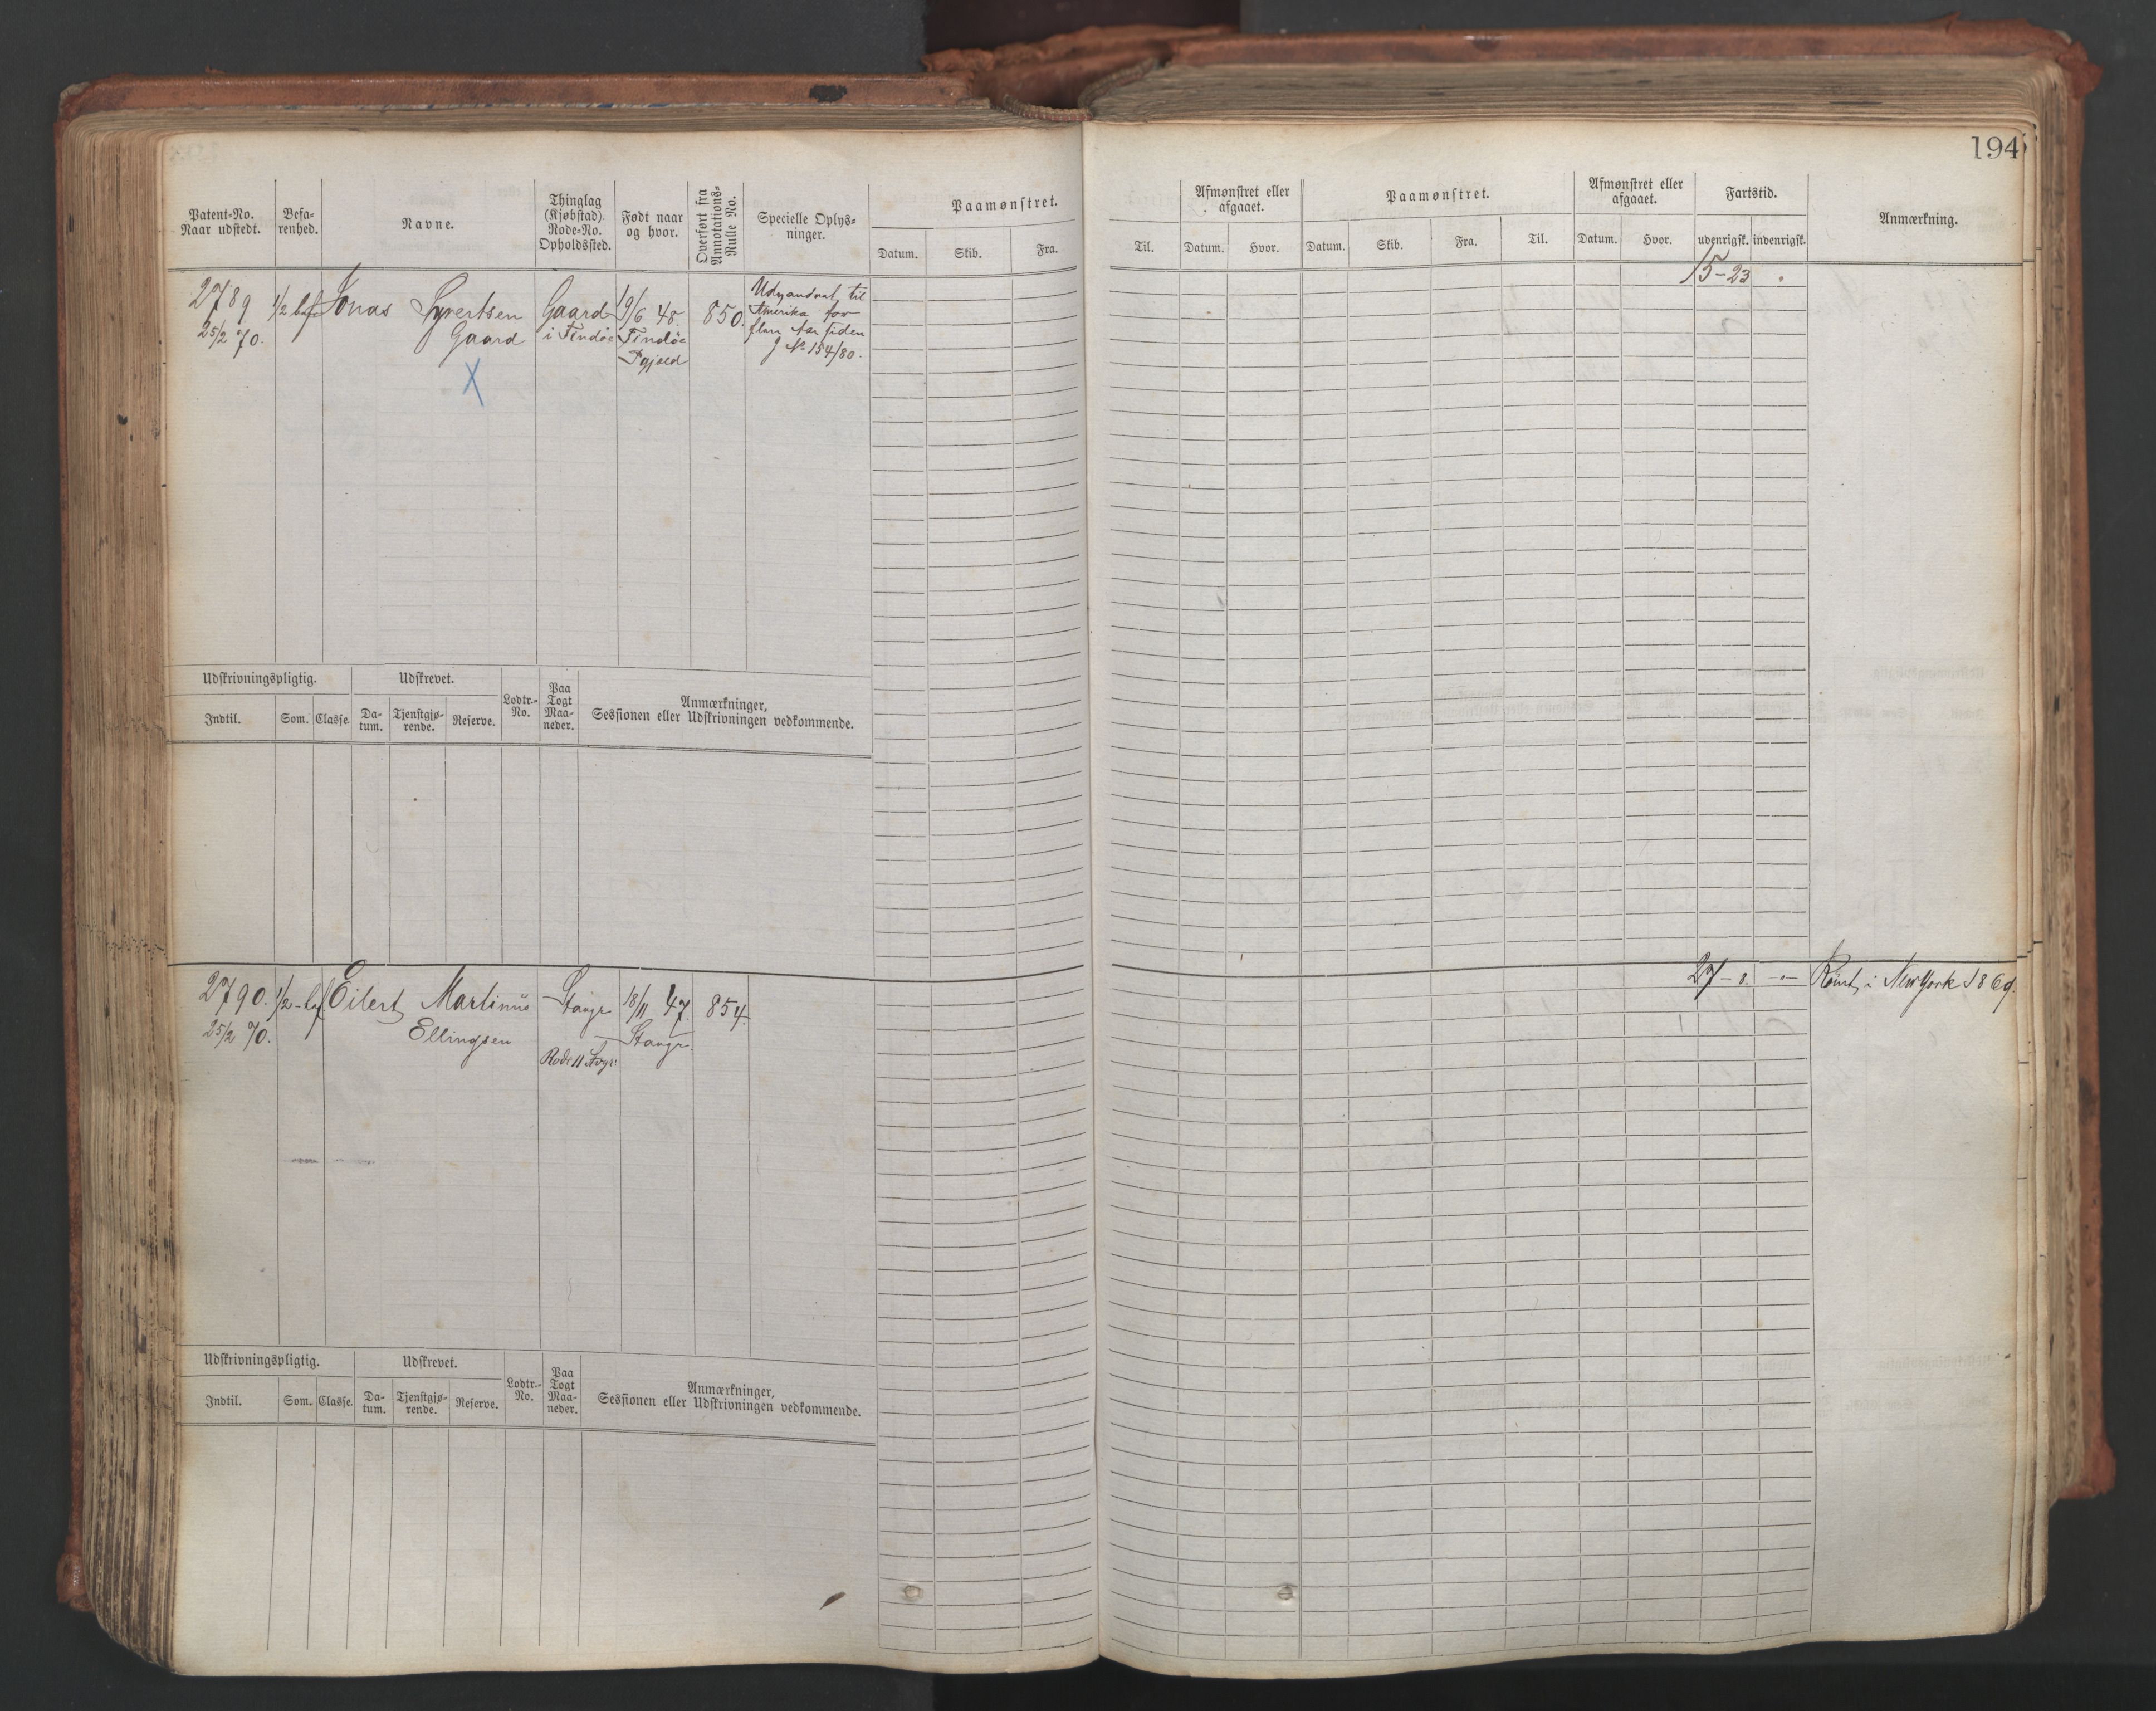 194
Patent-No. Naar udstedt.
Befa-renhed.
Navne.
Thinglag (Kjøbstad). Rode-No. Opholdssted.
Født naar og hvor.
Overført fra Annotations-Rulle No.
Specielle Oplys-ninger.
Paamønstret.
Datum. Skib. Fra.
Til.
Afmønstret eller afgaaet.
Datum. Hvor.
Paamønstret.
Datum. Skib. Fra. Til.
Afmønstret eller afgaaet.
Datum. Hvor.
Fartstid.
udenrigsk. indenrigsk.
Anmærkning.
2789
25/2 70.
1/2 bef
Jonas Syvertsen
Gaard
X
Gaard
i Findöe
19/6 48.
Findöe
Pgjæld
850.
Udvandret til
Amerika for
flere Aar siden
J No 154/80.
15-23
Udskrivningspligtig.
Indtil. Som. Classe.
Udskrevet.
Da-tum. Tjenstgjø-rende. Reserve.
Lodtr.-No.
Paa Togt Maa-neder.
Anmærkninger,
Sessionen eller Udskrivningen vedkommende.
2790.
25/2 70.
1/2-bef
Eilert Martinus
Ellingsen
Stavgr
Rode 11 Svgr:
18/11 47.
Stavgr.
854.
27-8. -"-
Rømt i New York 1869.
Udskrivningspligtig.
Indtil. Som. Classe.
Udskrevet.
Da-tum. Tjenstgjø-rende. Reserve.
Lodtr.-No.
Paa Togt Maa-neder.
Anmærkninger,
Sessionen eller Udskrivningen vedkommende.